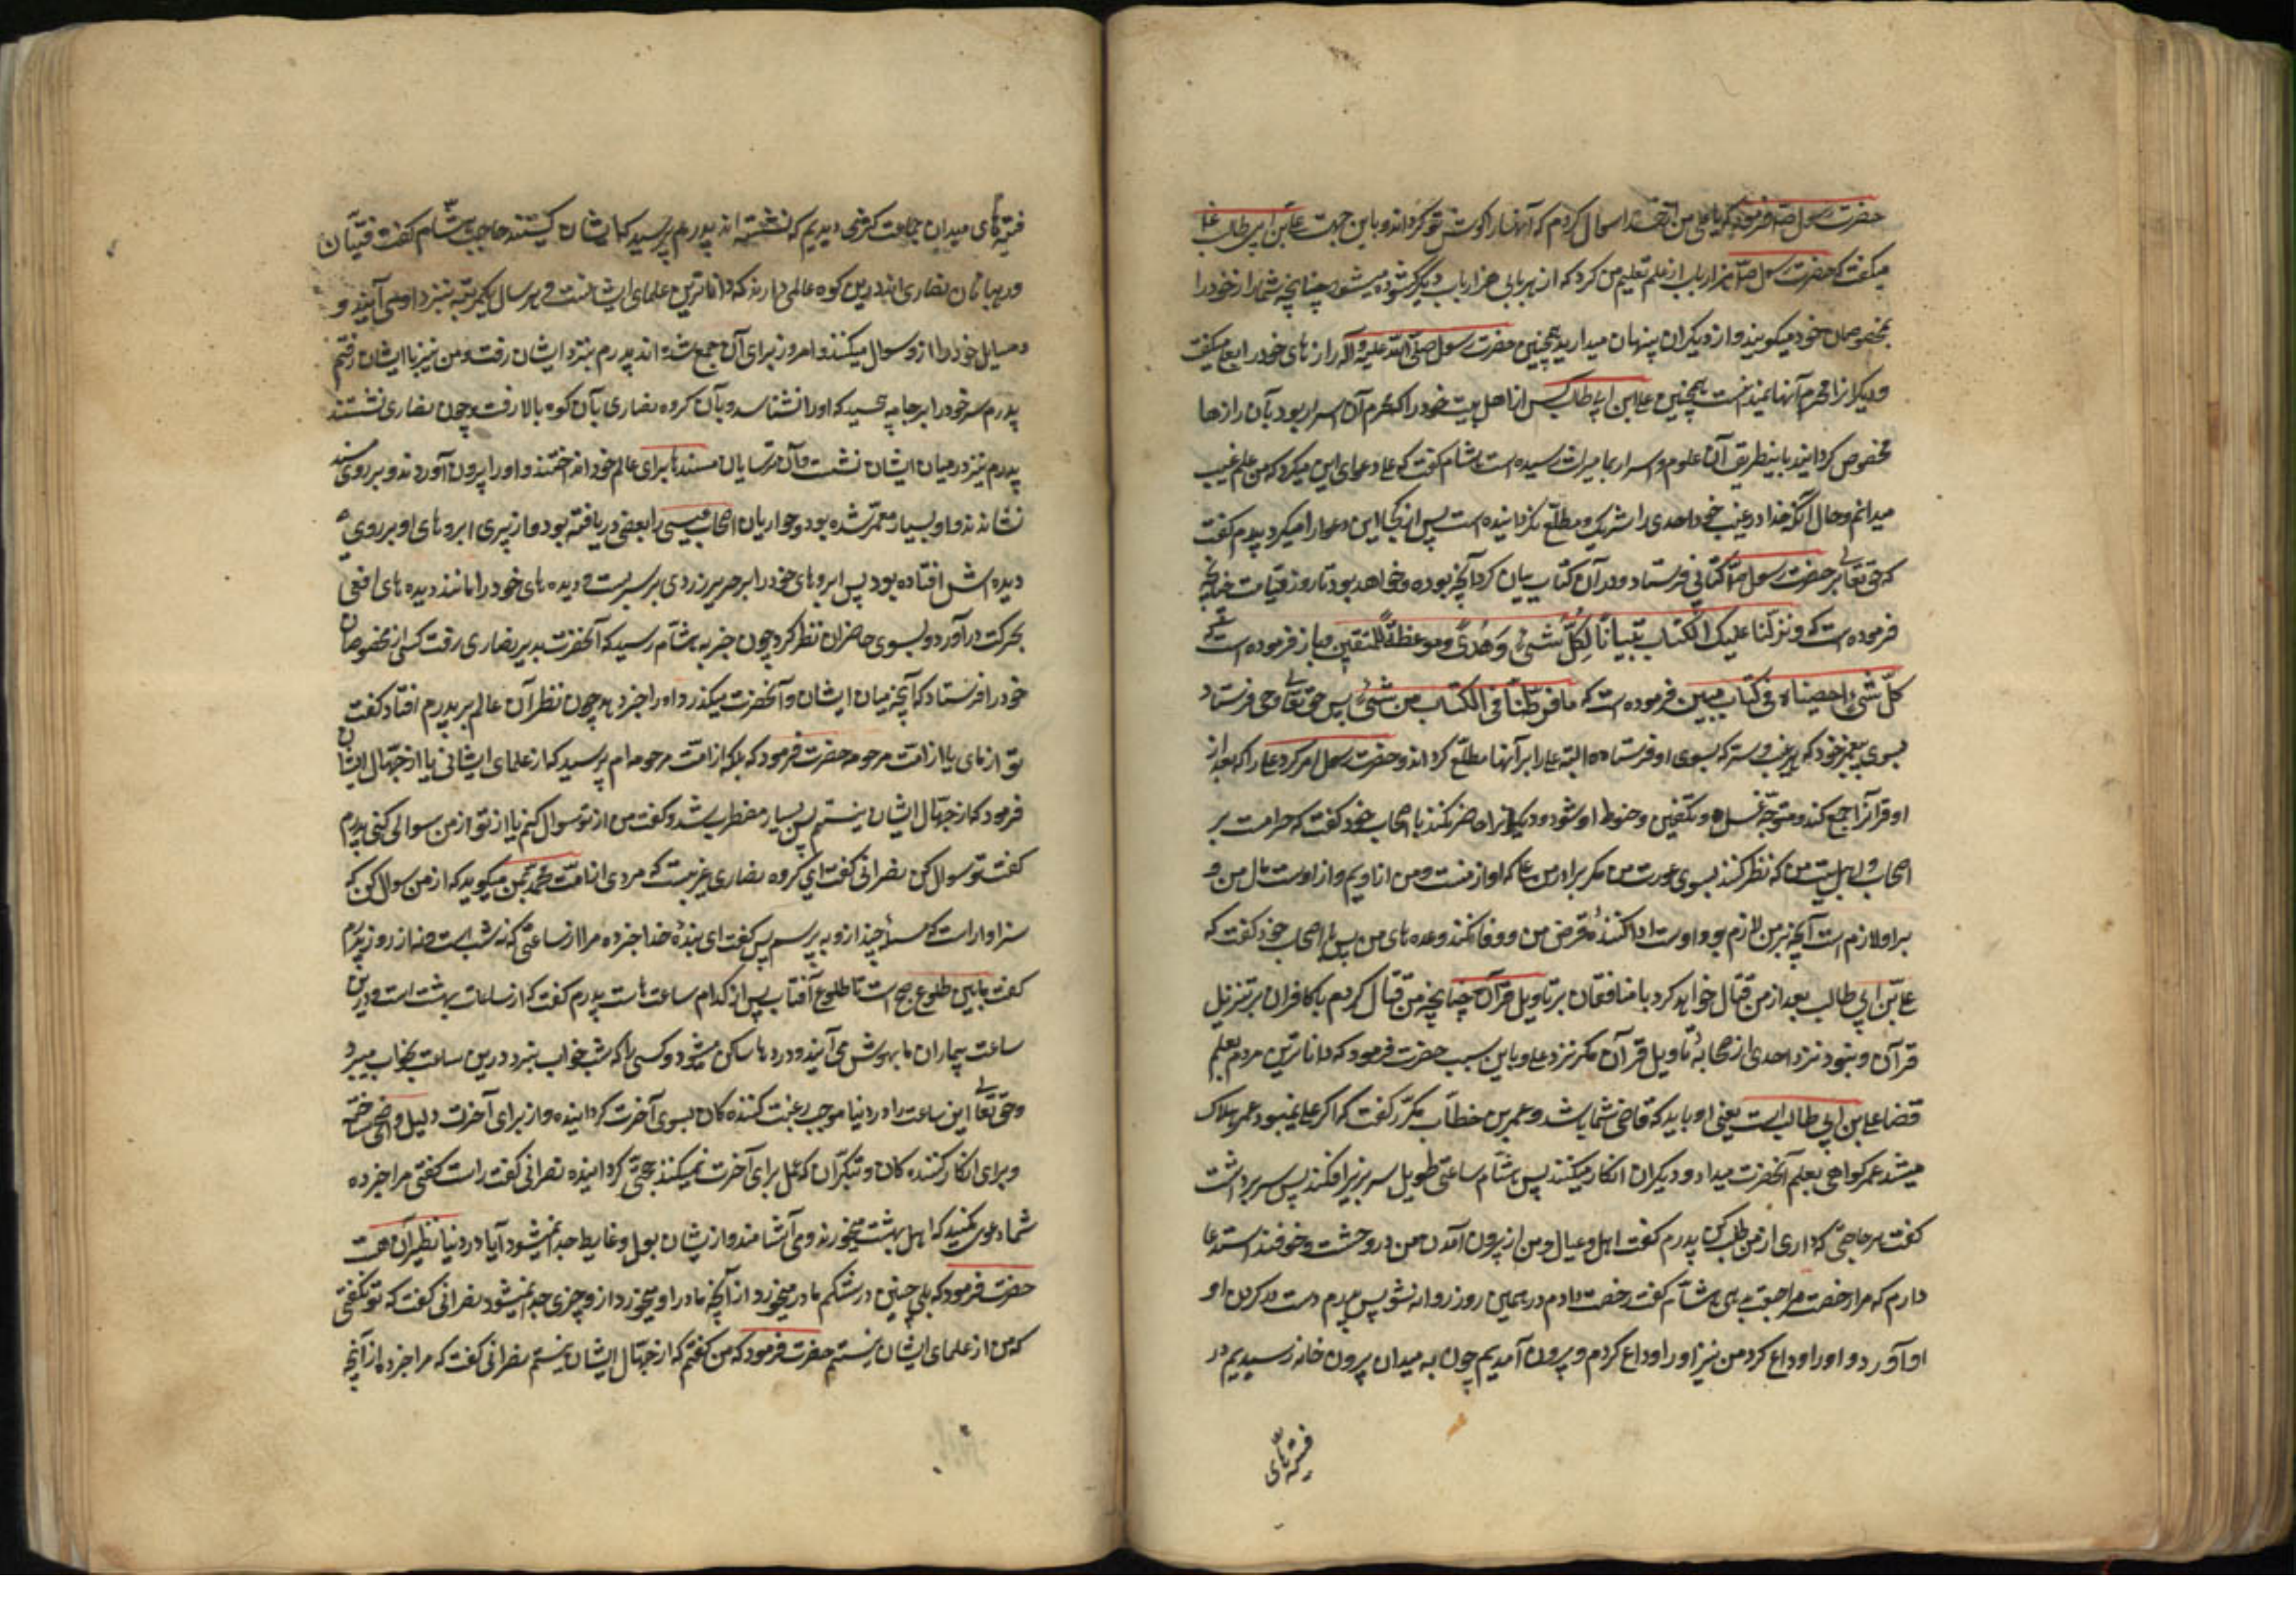 حضرت رسول ص فرمود که یا علی من از خدا سوال کردم که آنها را گوش تو گرداند و باین جهت علی بن ابی طالب ع
میگفت که حضرت رسول ص هزار باب از علم تعلیم من کرد که از هر بابی هزار باب دیگر گشوده میشود چنانچه شما راز خود را
بمخصوصان خود میگویند و از دیگران پنهان میدارید همچنین حضرت رسول صلی الله علیه و آله رازهای خود را بعلی میگفت
و دیگرانرا محرم آنها نمیدانست همچنین علی ابن ابی طالب کس از اهل بیت خود را که محرم آن اسرار بود بآن رازها
مخصوص گردانید باینطریق آن علوم و اسرار بما میراث رسیده است هشام گفت که علی دعوای این میکرد که من علم غیب
میدانم و حال آنکه خدا در غیب خود احدی را شریک و مطلع نگردانیده است پس از کجا این دعوا را میکرد پدرم گفت
که حق تعالی بر حضرت رسول ص کتابی فرستاد و در آن کتاب بیان کرد آنچه بوده و خواهد بود تا روز قیامت چنانچه
فرموده است که و نزلنا علیک الکتاب تبیانا لکل شیء و هدی و موعظة للمتقین و باز فرموده است
کل شیء احصیناه فی کتاب مبین و فرموده است که ما فرطنا فی الکتاب من شیء پس حق تعالی وحی فرستاد
بسوی پیغمبر خود که هر غیب و سر که بسوی او فرستاده البته علی را بر آنها مطلع گرداند و حضرت رسول امر کرد علی را که بعد از
او قرآنرا جمع کند و متوجه غسل و تکفین و حنوط او شود و دیگرانرا حاضر نکند با اصحاب خود گفت که حرامست بر
اصحاب و اهل بیت من که نظر کنند بسوی عورت من مگر برادر من علی که او از منست و من از اویم و از اوست مال من و
بر او لازم است آنچه بر من لازم بود و اوست اداکننده قرض من و وفا کننده وعده های من پس با اصحاب خود گفت که
علی بن ابی طالب بعد از من قتال خواهد کرد با منافقان بر تاویل قرآن چنانچه من قتال کردم با کافران بر تنزیل
قرآن و نبود نزد احدی از صحابه تاویل قرآن مگر نزد علی و باین سبب حضرت فرمود که داناترین مردم بعلم
قضا علی بن ابی طالب است یعنی او باید که قاضی شما باشد و عمر بن خطاب مکرر گفت که اگر علی نمیبود عمر هلاک
میشد عمر گواهی بعلم آنحضرت میداد و دیگران انکار میکنند پس هشام ساعتی طویل سر بزیر افکند پس سر برداشت
گفت هر حاجتی که داری از من طلب کن پدرم گفت اهل و عیال من از بیرون آمدن من در وحشت و خوفند استدعا
دارم که مرا رخصت مراجعت بدهی هشام گفت رخصت دادم در همین روز روانه شو پس پدرم دست در گردن او
او آورد و او را وداع کرد من نیز او را وداع کردم و بیرون آمدیم چون به میدان بیرون خانه رسیدیم در
فتیه های
فتیه های میدان جماعت کثیری دیدیم که نشسته اند پدرم پرسید که ایشان کیستند حاجب هشام گفت قسیسان
و رهبانان نصاری اند درین کوه عالمی دارند که داناترین علمای ایشانست و هر سال یکمرتبه بنزد او می آیند و
مسایل خود را از و سوال میکنند و امروز برای آن جمع شده اند پدرم بنزد ایشان رفت و من نیز با ایشان رفتم
پدرم سر خود را بر جامه پیچید که او را نشناسند و بآن گروه نصاری بآن کوه بالا رفت و چون نصاری نشستند
پدرم نیز در میان ایشان نشست و آن ترسایان مسندها برای عالم خود انداختند و او را بیرون آوردند و بر روی مسند
نشاندند و او بسیار معمر شده بود و حواریان اصحاب عیسی را بعضی دریافته بود و از پیری ابروهای او بر روی
دیده اش افتاده بود پس ابروهای خود را بر حریر زردی بر سر بست و دیده های خود را مانند دیده های افعی
بحرکت درآورد و بسوی حاضران نظر کرد چون خبر به هشام رسید که آنحضرت بدیر نصاری رفت کسی از مخصوصان
خود را فرستاد که آنچه میان ایشان و آنحضرت میگذرد او را خبر دهد چون نظر آن عالم بر پدرم افتاد گفت
تو از مای یا از امت مرحومه حضرت فرمود که بلکه از امت مرحومه ام پرسید که از علمای ایشانی یا از جهال ایشان
فرمود که از جهال ایشان نیستم پس بسیار مضطرب شد و گفت من از تو سوال کنم یا تو از من سوال کنی پدرم
گفت تو سوال کن نصرانی گفت ای گروه نصاری غریبست که مردی از امت محمد بمن میگوید که از من سوال کن که
سزاوار است که مسئله چند از و بپرسم پس گفت ای بنده خدا خبر ده مرا از ساعتی که نه شب است و نه از روز پدرم
گفت مابین طلوع صبح است تا طلوع آفتاب پس از کدام ساعت هاست پدرم گفت که از ساعات بهشت است و درین
ساعت بیماران ما بهوش می آیند و دردها ساکن میشود و کسی را که شب خواب نبرد درین ساعت بخواب میبرد
و حق تعالی این ساعت را در دنیا موجب رغبت رغبت کننده گان بسوی آخرت گردانیده و از برای آخرت دلیل واضحی ساخته
و برای انکار کننده گان و متکبران که عمل برای آخرت نمیکنند حجتی گردانیده نصرانی گفت راست گفتی مرا خبر ده
شما دعوی میکنید که اهل بهشت میخورند و می آشامند و از یشان بول و غایط جدا نمیشود آیا در دنیا نظیر آن هست
حضرت فرمود که بلی جنین در شکم مادر میخورد از آنچه مادر او میخورد و از و چیزی جدا نمیشود نصرانی گفت که تو نگفتی
که من از علمای ایشان نیستم حضرت فرمود که من گفتم که از جهال ایشان نیستم نصرانی گفت که مرا خبر ده از آنچه